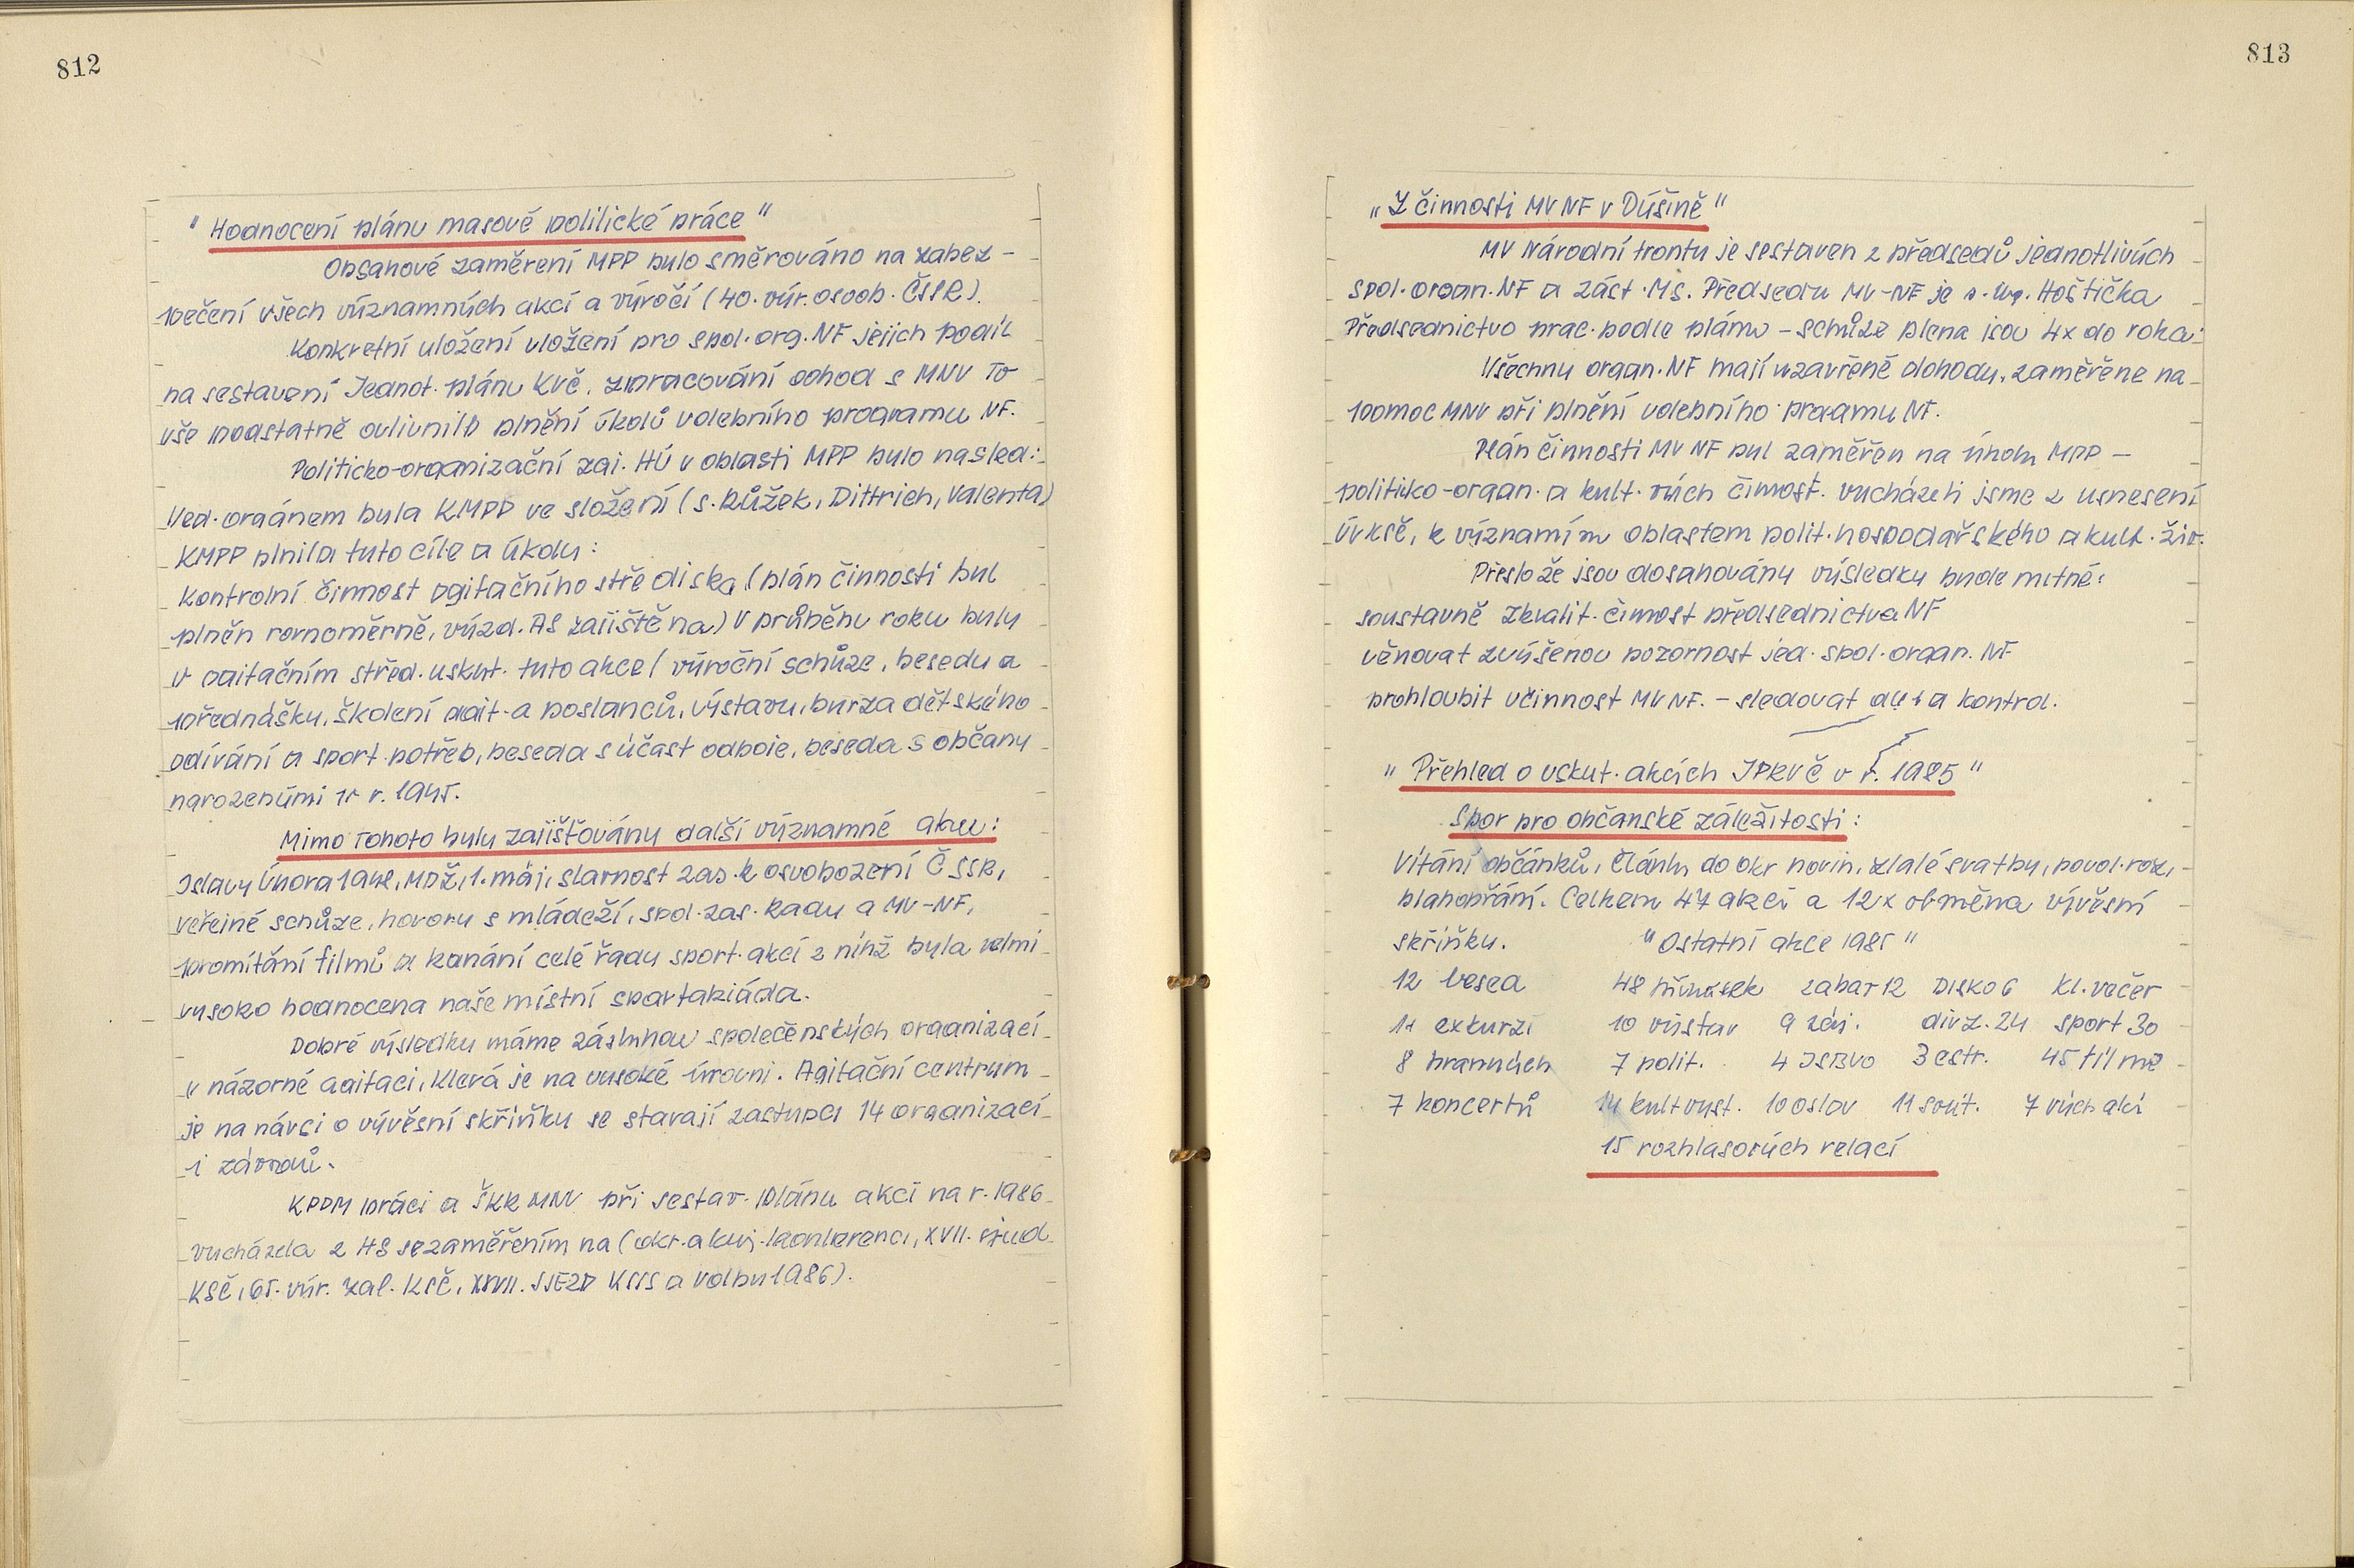 812
" Hodnocení plánu masové politické práce "
Obsahové zaměření MPP bylo směrováno na zabez-
pečení všech významných akcí a výročí (40. výr. osvob. ČSSR).
Konkretní uložení uložení pro spol. org. NF jejich podíl
na sestavení Jednot. plánu KVČ, zpracování dohod s MNV To
vše podstatně ovlivnilo plnění úkolů volebního programu NF.
Politicko-organizační zaj. HÚ v oblasti MPP bylo násled:
Ved. orgánem byla KMPP ve složení (s. Růžek, Dittrich, Valenta)
KMPP plnila tyto cíle a úkoly:
Kontrolní činnost agitačního střediska (plán činnosti byl
plněn rovnoměrně, výzd. AS zajištěna) V průběhu roku byly
v agitačním střed. uskut. tyto akce (výroční schůze, besedy a
přednášky, školení agit. a poslanců, výstavy, burza dětského
odívání a sport. potřeb, beseda s účast odboje, beseda s občany
narozenými v r. 1945.
Mimo tohoto byly zajišťovány další významné akce:
Oslavy Února 1948, MDŽ, 1. máj, slavnost zas. k osvobození ČSSR,
veřejné schůze, hovory s mládeží, spol. zas. Rady a MV-NF,
promítání filmů a konání celé řady sport. akcí z nihž byla velmi
vysoko hodnocena naše místní spartakiáda.
Dobré výsledky máme zásluhou společenských organizací
v názorné agitaci, která je na vysoké úrovni. Agitační centrum
je na návsi o vývěsní skříňky se starají zástupci 14 organizací
i závodů.
KPPM práci a ŠKK MNV při sestav. plánu akcí na r. 1986
vycházela z HS se zaměřením na (okr. a kraj. konferenci, XVII. sjezd
KSČ, 65. výr. zal. KSČ, XXVII. SJEZD KSSS a volby 1986).
813
„ Z činnosti MV NF v Dýšině "
MV Národní fronty je sestaven z předsedů jednotlivých
spol. organ. NF a zást. MS. Předsedou MV-NF je s. Hoštička
Předsednictvo prac. podle plánu - schůze plena jsou 4x do roka.
Všechny organ. NF mají uzavřené dohody, zaměřené na
pomoc MNV při plnění volebního programu NF.
Plán činnosti MV NF byl zaměřen na úkoly MPP -
politiko-organ. a kult. vých činnost. vycházeli jsme z usnesení
ÚV KSČ, k významím oblastem polit. hospodařského a kult. živ.
Přesto že jsou dosahovány výsledky bude nutné:
soustavně zkvalit. činnost předsednictva NF
věnovat zvýšenou pozornost jed. spol. organ. NF
prohloubit účinnost MV NF. - sledovat a kontrol.
" Přehled o uskut. akcích JPKVČ v r. 1985 "
Sbor pro občanské záležitosti:
Vítání občánků, články do okr novin, zlaté svatby, povol. roz,
blahopřání. Celkem 47 akcí a 12x obměna vývěsní
skříňky. "Ostatní akce 1985"
12 besed 48 zábav 12 DISKO 6 Kl. večer
11 exkurzí 10 výstav 9 záj. div z. 24 sport 30
8 branných 7 polit. 4 3 estr. 45 filme
7 koncertů 14 kult vyst. 10 oslav 11 sout. 7 vých akcí
15 rozhlasových relací